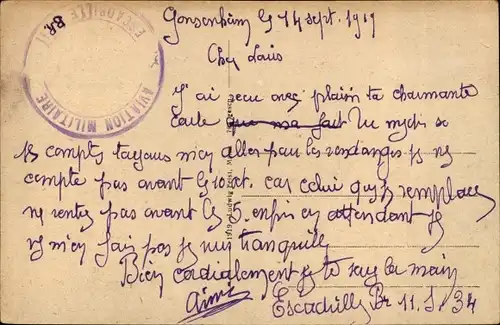 AVIATION MILITAIRE
ESCADRILLE
Gonsenheim le 14 sept. 1919
Cher Louis
J'ai recu avec plaisir ta charmante
carte que me fait Tu me dis
les comptes m'en aller pour les vendanges je ne
compte pas avant le 10 oct. car celui que je remplace
ne rentre pas avant le 5. enfin en attendant je
ne m'en fais pas je suis tranquille
Bien cordialement je te serre la main
Aimé
Escadrille Br 11. S. P. 34